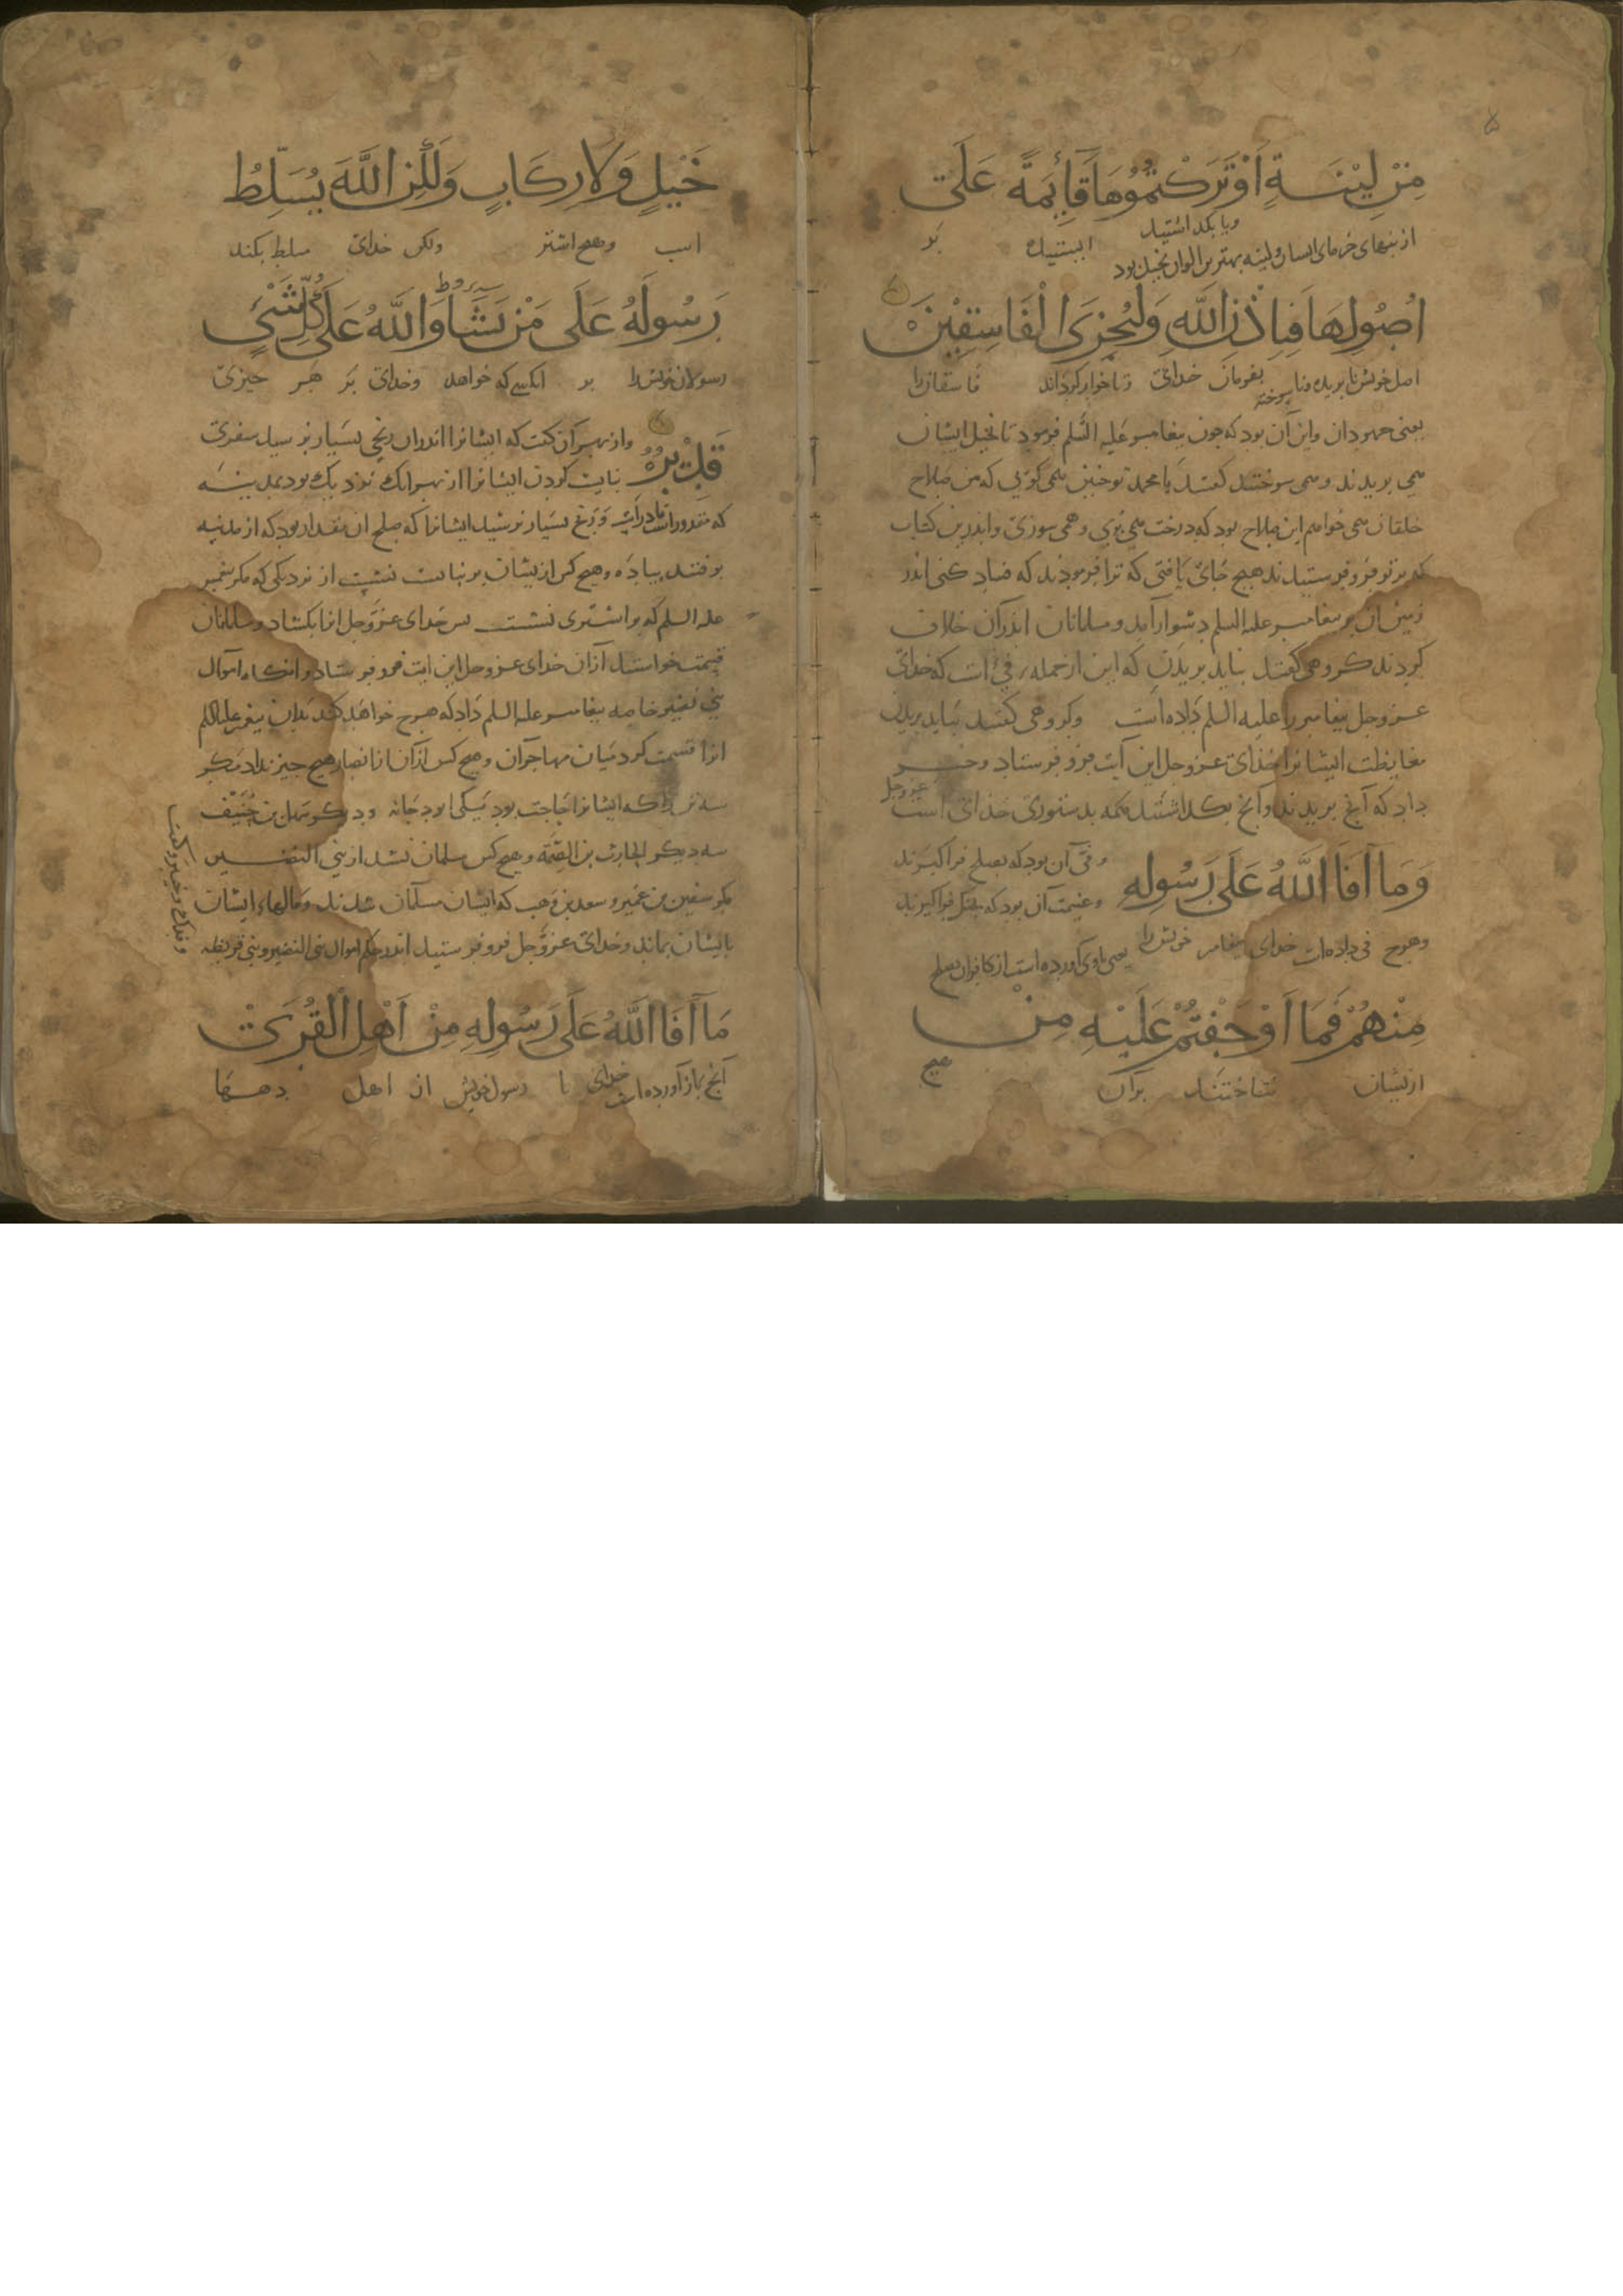 مِنْ لِيْنَةٍ اَوْتَرَكْتُمُوُهَا قَآئِمَةً عَلَى
ويا بكذاشتيد
از بنهای خرمای ایشان ولینه بهترین الوان نخیل بود
ایستیده بر
اُصُولِهَا فَبِاِذْنِ اللَّهِ وَلِيُخْزِىَ الْفَاسِقِيْنَ
اصل خویش نابریده ونا سوخته بفرمان خدای وتا خوار کرداند فاسقانرا
یعنی جهودان واین آن بود که جون بیغامبر علیه السلم فرمود تا نخیل ایشان
همی بریدند وهمی سوختند کفتند یا محمد تو جنین همی کویی که من صلاح
خلقان همی خواهم این صلاح بود که درخت همی بری وهمی سوزی واندرین کتاب
که بر تو فروفرستیدند هیج جای یافتی که ترا فرمودند که فساد کنی اندر
زمین آن بر بیغامبر علیه السلم دشوار آمد ومسلمانان اندرآن خلاف
کردند کروهی کفتند نباید بریدن که این از جمله فیء است که خدای
عزوجل بیغامبر را علیه السلم داده است وکروهی کفتند بباید بریدن
مغایظت ایشانرا خدای عزوجل این آیت فرو فرستاد وخبر
داد که آنج بریدند وآنج بکذاشتند همه بدستوری خدای عزوجل است
وَمَا اَفَا اللَّهُ عَلَى رَسُولِهِ
وفی آن بود که بصلح فرا کیرند
وغنیمت آن بود که بجنک فرا کیرند
وهرج فی داده است خدای بیغامبر خویش را
یعنی باوی آورده است از کافران بصلح
مِنْهُمْ فَمَا اَوْجَفْتُمْ عَلَيْهِ مِنْ
ازیشان نتاختند برآن هیج
خَيْلٍ وَلَا رِكَابٍ وَلَكِنَّ اللَّهَ يُسَلِّطُ
اسب وهیج اشتر ولکن خدای مسلط بکند
رَسُولَهُ عَلَى مَنْ يَشَا وَاللَّهُ عَلَى كُلِّ شَيْءٍ
رسولان خویش را بر آنکسی که خواهد وخدای بر هر جیزی
قَدِيْرٌ
واز بهر آن کفت که ایشانرا اندران رنجی بسیار نرسید سفری
نبایست کردن ایشانرا از بهر آنک نزدیک بود بمدینه
بسیار نرسید ایشانرا که صلح آن مقدار بود که از مدینه
برفتند بیاده وهیج کس ازیشان بر نبایست نشست از نزدیکی که مکر بیغمبر
علیه السلم که بر اشتری نشست بس خدای عزوجل آنرا بکشاد ومسلمانان
قیمت خواستند ازان خدای عزوجل این ایت فرو فرستاد وانکاه اموال
بنی نضیر خاصه بیغامبر علیه السلم داد که هرج خواهد کند بدان بیغمبر علیه السلم
انرا قسمت کرد میان مهاجران وهیج کس از آن انصار هیج جیز نداد مکر
سه تن را که ایشانرا حاجت بود یکی ابو دجانه ودیکر سهل بن حنیف
سه دیکر الحارث بن الصمة وهیج کس مسلمان نشد از بنی النضیر
مکر سفین بن عمیر وسعد بن وهب که ایشان مسلمان شدند ومالهاء ایشان
بایشان بماند وخدای عزوجل فروفرستید اندر حکم اموال بنی النضیر وبنی قریظه
وفدک وخیبر وکفت
مَا اَفَا اللَّهُ عَلَى رَسُولِهِ مِنْ اَهْلِ الْقُرَى
آنج باز آورده است خدای با رسول خویش از اهل دهها